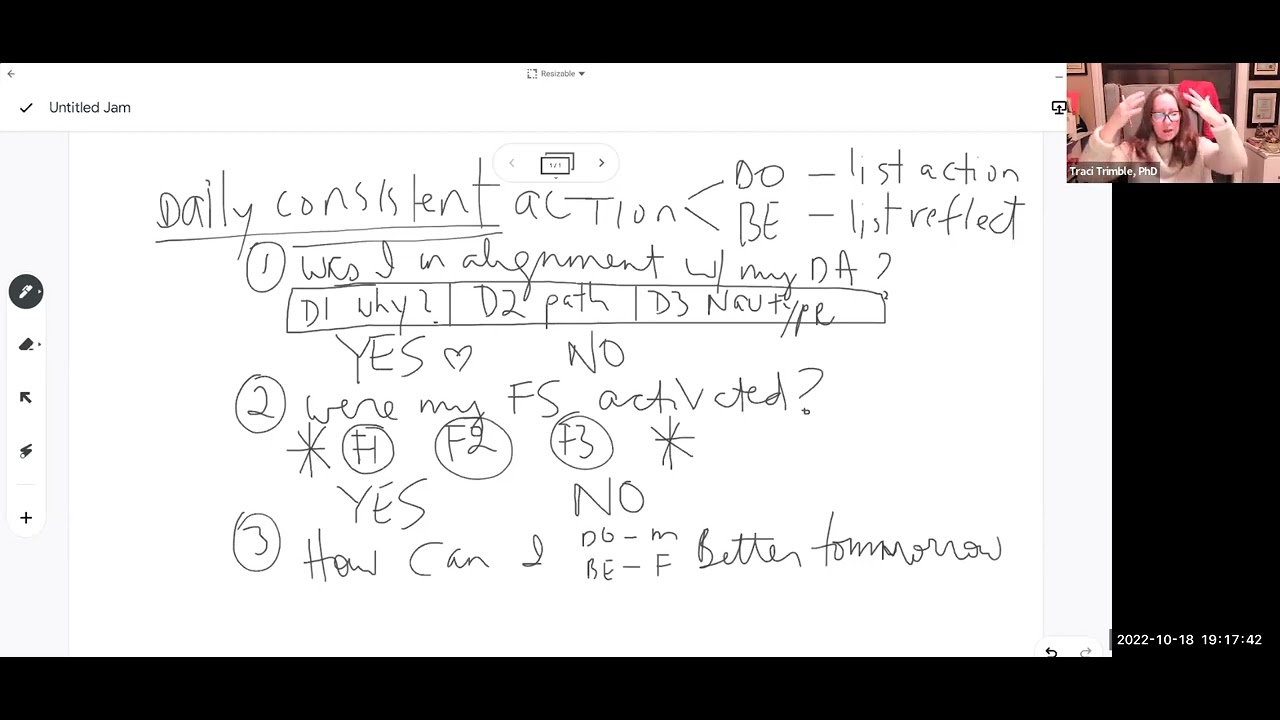 Resizable
Untitled Jam
1/1
Traci Trimble, PhD
Daily consistent action DO - list action
BE - list reflect
1 was I in alignment w/ my DA?
D1 why? D2 path D3
/PR
YES NO
2 were my FS activated?
* F1 F2 F3 *
YES NO
3 How can I DO - M Better tommorrow
BE - F
2022-10-18 19:17:42